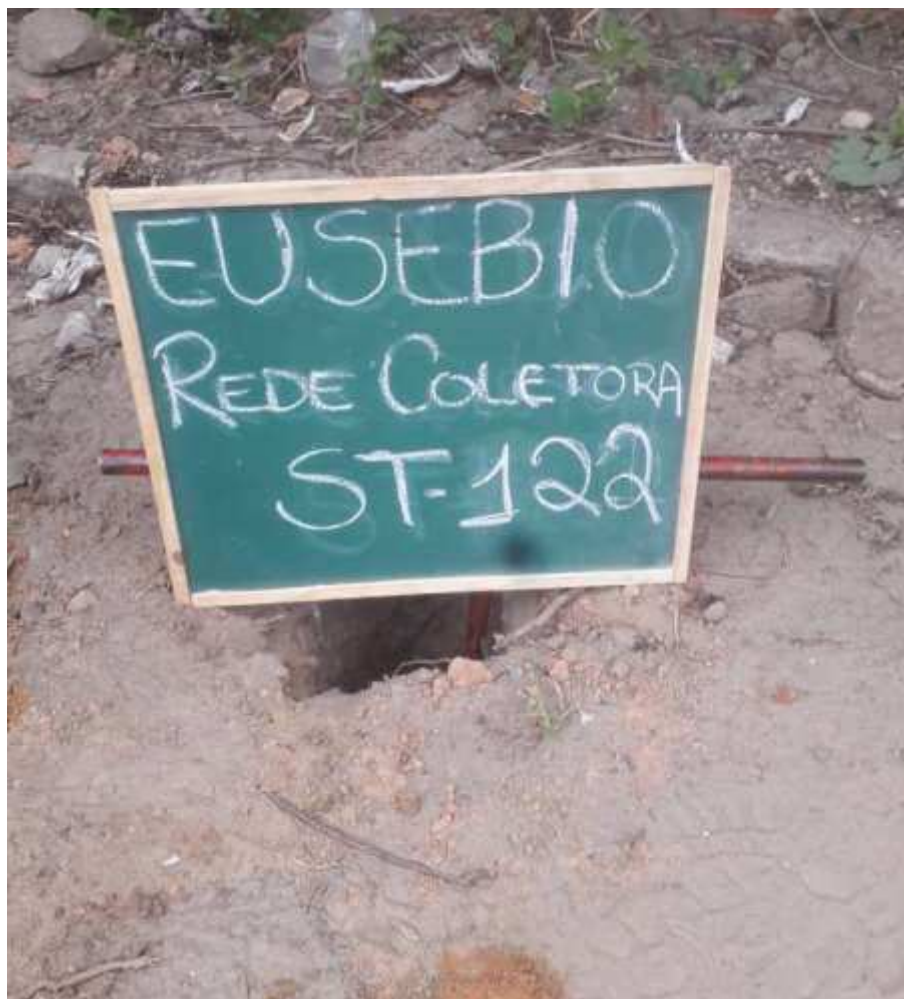 EUSEBIO
REDE COLETORA
ST-122